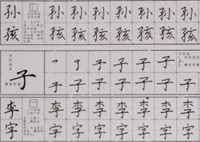 孙 孙 孙 孙 孙 孙 孙
孩 孩 孩 孩 孩 孩 孩
子 子 子 子 子 子
子 子 子 子 子 子
李 李 李 李 李 李 李 李
字 字 字 字 字 字 字 字